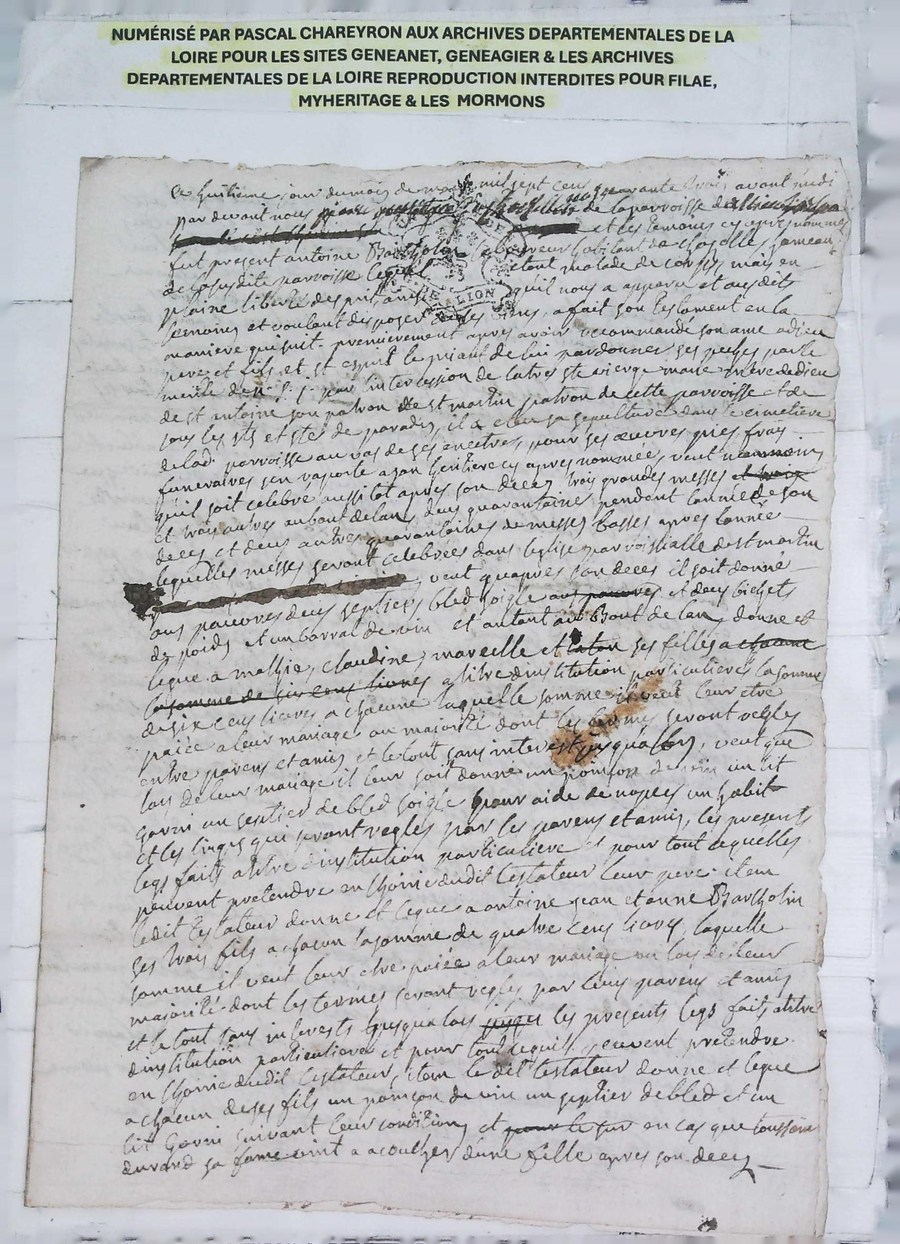 NUMÉRISÉ PAR PASCAL CHAREYRON AUX ARCHIVES DEPARTEMENTALES DE LA
LOIRE POUR LES SITES GENEANET, GENEAGIER & LES ARCHIVES
DEPARTEMENTALES DE LA LOIRE REPRODUCTION INTERDITES POUR FILAE,
MYHERITAGE & LES MORMONS
Ce huitieme jour du mois de mil sept cens quarante trois avant midi
par devant nous de la parroisse de
et les temoins cy apres nommés
fut present antoine Bartholin laboureur habitant de hameau
de la susdite parroisse lequel etant malade de corps mais en
plaine liberte desprit ainsi quil nous a apparu et aus dits
temoins et voulant disposer de ses biens, a fait son testament en la
maniere qui suit. premierement apres avoir recommandé son ame a dieu
pere et fils et st esprit le priant de lui pardonner ses peches par le
merite de n. s. j. par intercession de la tres ste vierge marie mere de dieu
de st antoine son patron de st martin patron de cette parroisse et de
tous les sts et stes de paradis, il a elu sa sepulture dans le cimetiere
de lad. parroisse au vas de ses encetres, pour ses œuvres pies frais
funeraires sen raporte a son heritiere cy apres nommée, veut
quil soit celebré aussitot apres son deces trois grandes messes et trois
et trois autres au bout de lan, deus quarantaines pendent lannée de son
deces et deus autres quarantaines de messes basses apres lannée
lequelles messes seront celebrées dans leglise parroissialle de st martin
veut quapres son deces il soit donné
aus pauvres deus septiers bled soigle aus pauvres et deus bichets
de poids et un barral de vin et autant au Bout de lan, donne et
legue a mathie, claudine, marcelle et ses filles a chacune
la somme de six cens livres a titre dinstitution particuliere la somme
de six cens livres a chacune laquelle somme il veut leur etre
paiée a leur mariage ou majorité dont les termes seront regles
entre parens et amis et le tout sans interest jusqua lors, veut que
lors de leur mariage il leur soit donné un poinson de vin un lit
garni un septier de bled soigle pour aide de nopces un habit
et les linges qui seront regles par les parens et amis, les presents
legs faits a titre dinstitution particuliere et pour tout lequelles
peuvent pretendre en lhoirie dudit testateur leur pere. item
ledit testateur donne et legue a antoine jean et Bartholin
ses trois fils a chacun la somme de quatre cens livres, laquelle
somme il veut leur etre paiée a leur mariage ou lors de leur
majorité dont les termes seront regles par leurs parens et amis
et le tout sans interests jusqua lors les presents legs faits a titre
dinstitution particuliere et pour tout lequils peuvent pretendre
en lhoirie dudit testateur, item le dit testateur donne et legue
a chacun de ses fils un poinson de vin un septier de bled et un
lit garni suivant leur condition, et en cas que
durand sa fame vint a acoucher dune fille apres son deces